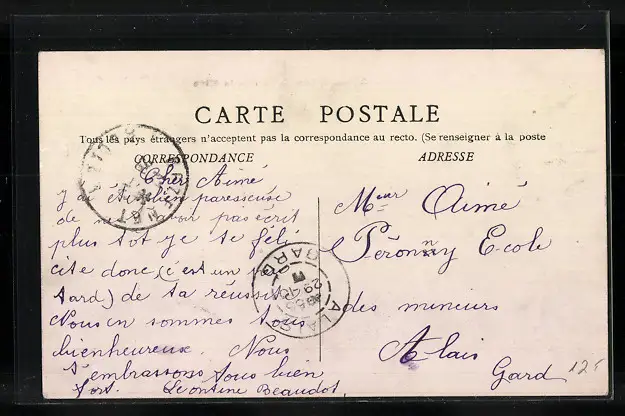 CARTE POSTALE
Tous les pays étrangers n'acceptent pas la correspondance au recto. (Se renseigner à la poste
CORRESPONDANCE
Cher Aimé
J'ai été bien paresseuse
de ne avoir pas écrit
plus tot je te féli
cite donc (c'est un
tard) de ta réussite
Nous en sommes tous
bienheureux. Nous
t'embrassons tous bien
fort. Léontine Beaudot.
ADRESSE
Mr Aimé
Péronny Ecole
des mineurs
Alais
Gard
125
ALAIS
GARD
29